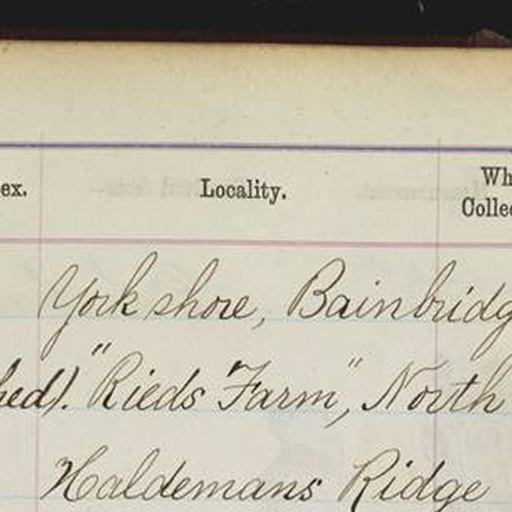 ex.
Locality.
Wh
Collec
Yorkshore, Bainbridg
hed). "Rieds Farm", North
Haldemans Ridge